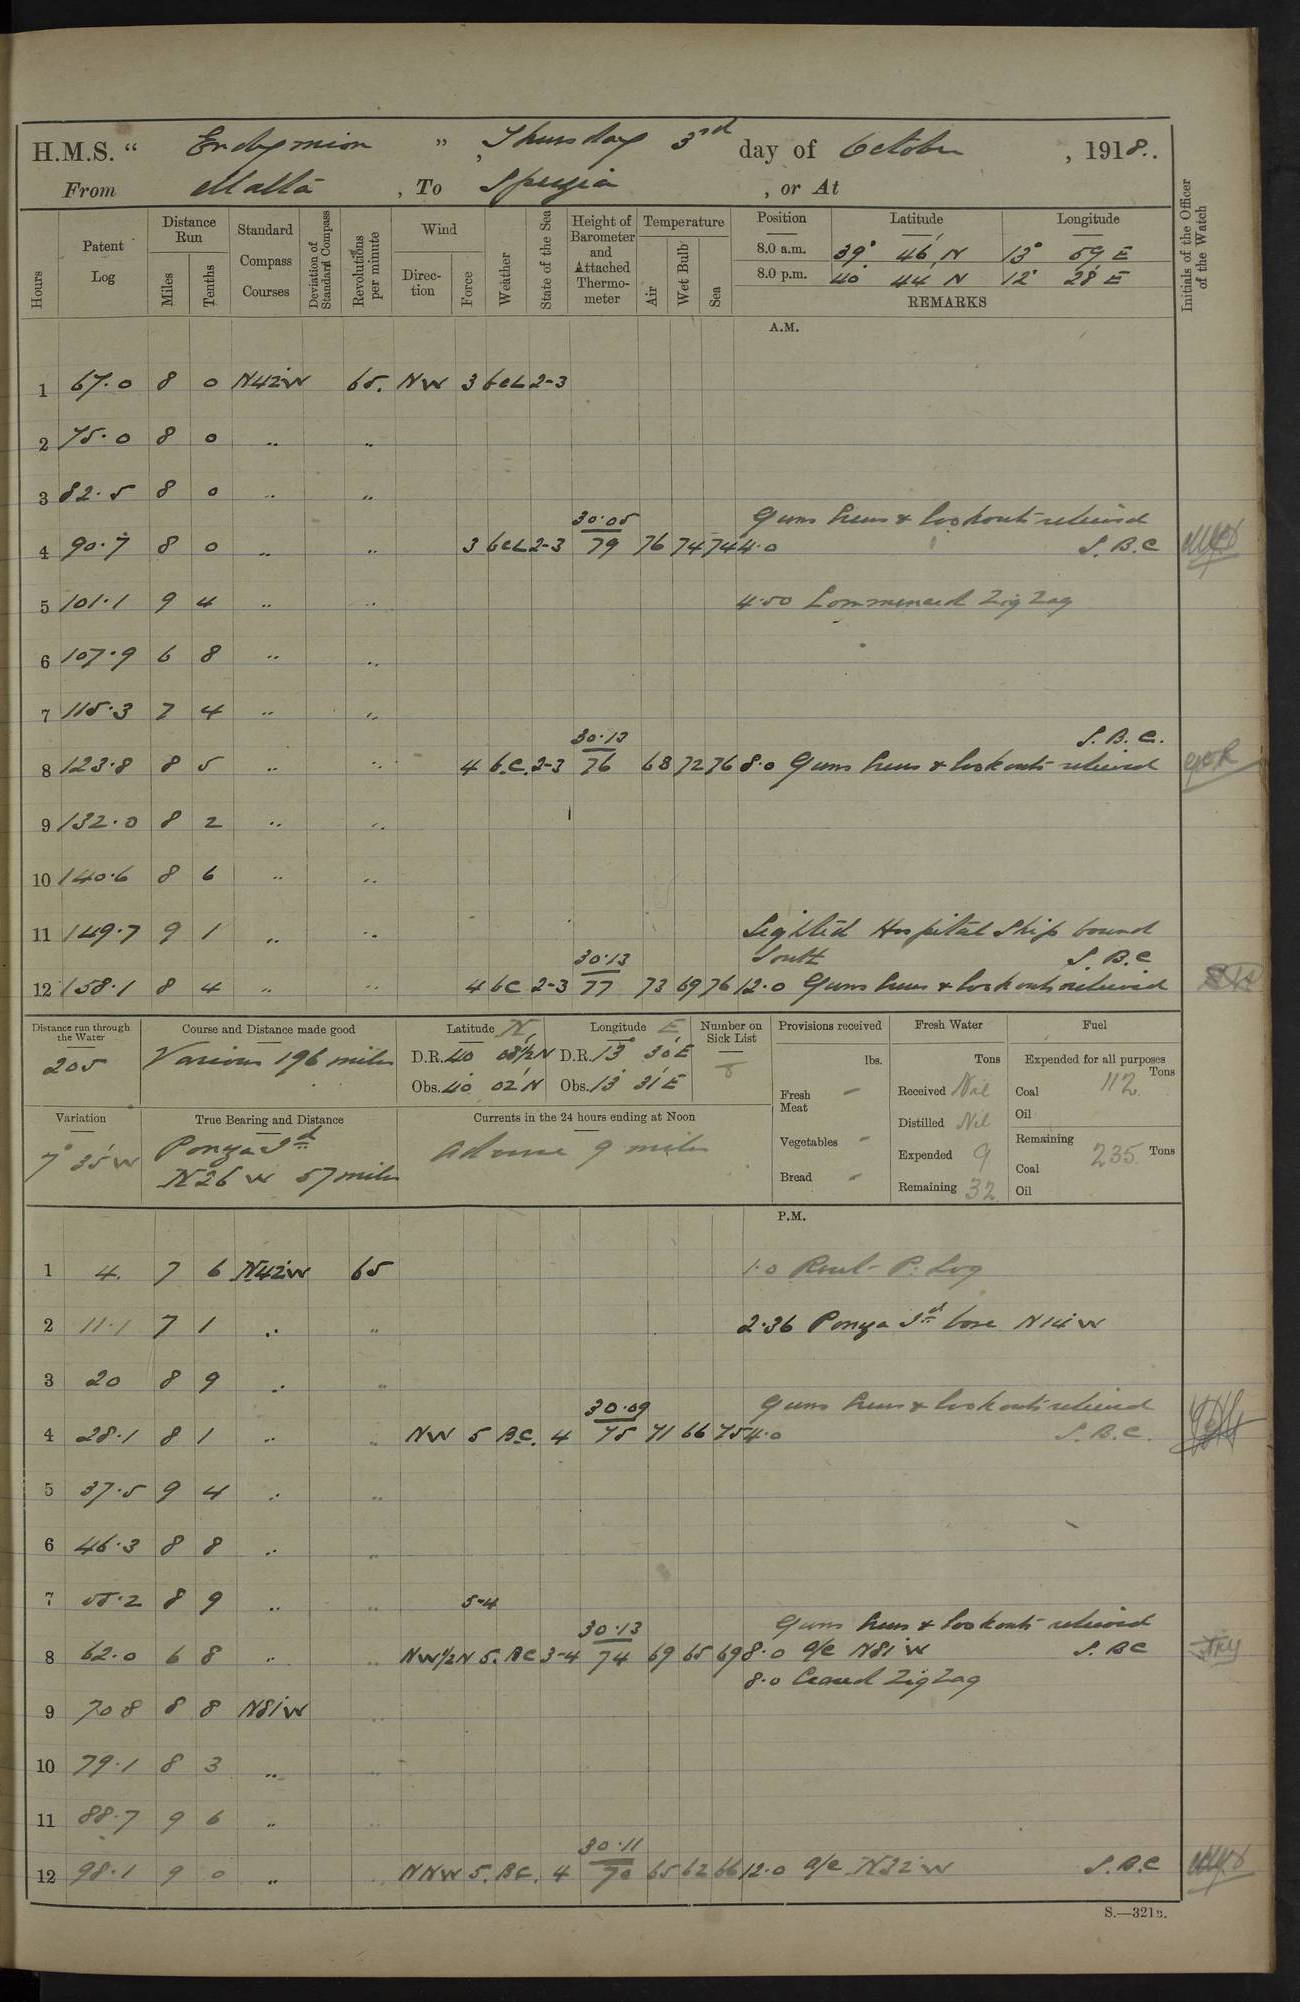 H.M.S. " Endymion ", Thursday 3rd day of October, 1918.
From Malta, To Spezia, or At
Hours
Patent Log
Distance Run
Miles
Tenths
Standard Compass Courses
Deviation of Standard Compass
Revolutions per minute
Wind
Direction
Force
Weather
State of the Sea
Height of Barometer and Attached Thermometer
Temperature
Air
Wet Bulb
Sea
Position Latitude Longitude
8.0 a.m. 39° 46' N 13° 59' E
8.0 p.m. 40° 44' N 12° 28' E
REMARKS
Initials of the Officer of the Watch
A.M.
1 67.0 8 0 N42°W 65. NW 3 bcL 2-3
2 75.0 8 0 " "
3 82.5 8 0 " "
30.05 Guns Crews & lookouts relieved
4 90.7 8 0 " " 3 bcL 2-3 79 76 74 74 4.0 S.B.C
5 101.1 9 4 " " 4.50 Commenced Zig Zag
6 107.9 6 8 " "
7 115.3 7 4 " "
30.13 S.B.C.
8 123.8 8 5 " " 4 b.c. 2-3 76 68 72 76 8.0 Guns Crews & lookouts relieved
9 132.0 8 2 " "
10 140.6 8 6 " "
11 149.7 9 1 " " Sighted Hospital Ship bound
30.13 South S.B.C
12 158.1 8 4 " " 4 bc 2-3 77 73 69 76 12.0 Guns Crews & lookouts relieved
Distance run through the Water
205
Course and Distance made good
Various 196 miles
Latitude N
D.R. 40 08½ N
Obs. 40 02' N
Longitude E
D.R. 13° 30' E
Obs. 13° 31' E
Number on Sick List
8
Provisions received
lbs.
Fresh Meat -
Vegetables -
Bread -
Fresh Water
Tons
Received Nil
Distilled Nil
Expended 9
Remaining 32
Fuel
Expended for all purposes
Tons
Coal 112
Oil
Remaining
Coal 235 Tons
Oil
Variation
7° 35' W
True Bearing and Distance
Ponza Id
N26 W 57 miles
Currents in the 24 hours ending at Noon
Adverse 9 miles
P.M.
1 4. 7 6 N42°W 65 1.0 Reset P. Log
2 11.1 7 1 " " 2.36 Ponza Id bore N14°W
3 20 8 9 " "
30.09 Guns Crews & lookouts relieved
4 28.1 8 1 " " NW 5 BC. 4 75 71 66 75 4.0 S.B.C.
5 37.5 9 4 " "
6 46.3 8 8 " "
7 55.2 8 9 " " 5-4
30.13 Guns Crews & lookouts relieved
8 62.0 6 8 " " NW½N 5. BC 3-4 74 69 65 69 8.0 a/c N81°W S.BC
8.0 Ceased Zig Zag
9 70.8 8 8 N81°W "
10 79.1 8 3 " "
11 88.7 9 6 " "
30.11
12 98.1 9 0 " " NNW 5. BC. 4 70 65 62 66 12.0 a/c N32°W S.B.C
S.—321B.